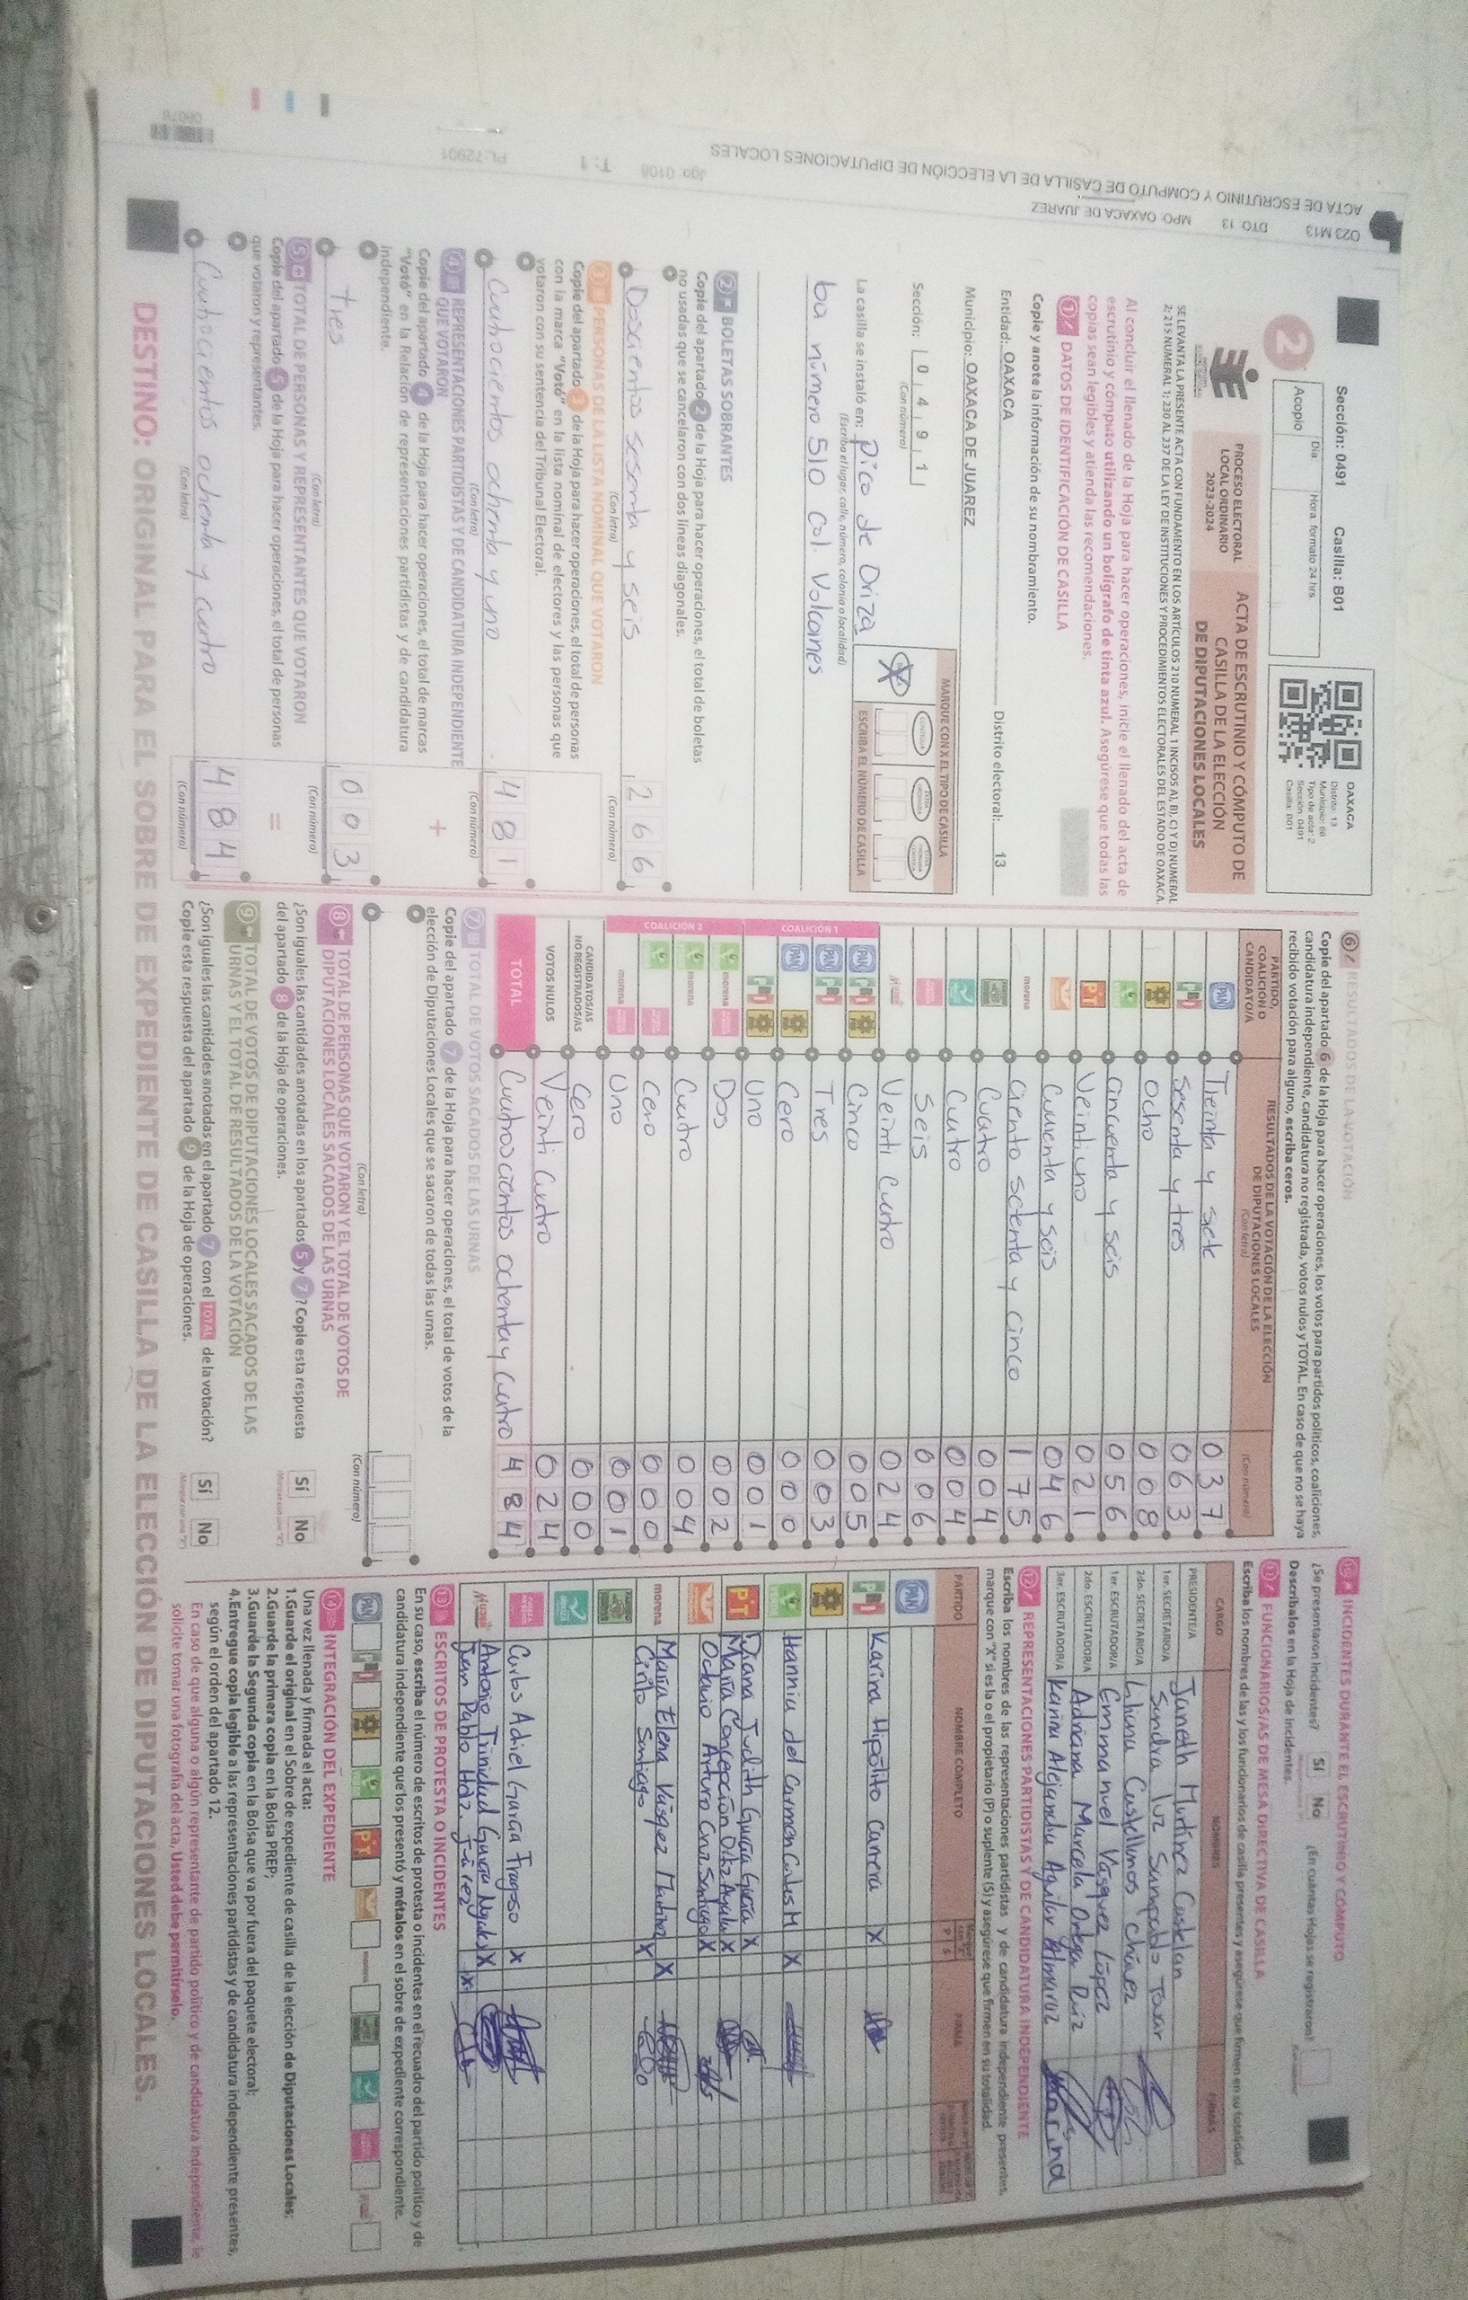 ACTA DE ESCRUTINIO Y CÓMPUTO DE CASILLA DE LA ELECCIÓN DE DIPUTACIONES LOCALES
023 M13 DTO. 13 MPO. OAXACA DE JUAREZ
Jgo: 0108 T: 1
Sección: 0491 Casilla: B01
Día Hora formato 24 hrs
Acopio
OAXACA
Distrito: 13
Tipo de acta: 2
Sección: 0491
Casilla: B01
2
PROCESO ELECTORAL
LOCAL ORDINARIO
2023-2024
ACTA DE ESCRUTINIO Y CÓMPUTO DE
CASILLA DE LA ELECCIÓN
DE DIPUTACIONES LOCALES
SE LEVANTA LA PRESENTE ACTA CON FUNDAMENTO EN LOS ARTÍCULOS 210 NUMERAL 1 INCISOS A), B), C) Y D) NUMERAL
2; 215 NUMERAL 1; 230 AL 237 DE LA LEY DE INSTITUCIONES Y PROCEDIMIENTOS ELECTORALES DEL ESTADO DE OAXACA.
Al concluir el llenado de la Hoja para hacer operaciones, inicie el llenado del acta de
escrutinio y cómputo utilizando un bolígrafo de tinta azul. Asegúrese que todas las
copias sean legibles y atienda las recomendaciones.
1 DATOS DE IDENTIFICACIÓN DE CASILLA
Copie y anote la información de su nombramiento.
Entidad: OAXACA Distrito electoral: 13
Municipio: OAXACA DE JUAREZ
Sección: 0 4 9 1
(Con número)
MARQUE CON X EL TIPO DE CASILLA
ESCRIBA EL NÚMERO DE CASILLA
La casilla se instaló en: pico de Oriza
(Escriba el lugar, calle, número, colonia o localidad)
ba número 510 Col Volcanes
2 BOLETAS SOBRANTES
Copie del apartado 2 de la Hoja para hacer operaciones, el total de boletas
no usadas que se cancelaron con dos líneas diagonales.
Doscientos sesenta y seis 2 6 6
(Con letra) (Con número)
3 PERSONAS DE LA LISTA NOMINAL QUE VOTARON
Copie del apartado 3 de la Hoja para hacer operaciones, el total de personas
con la marca "Votó" en la lista nominal de electores y las personas que
votaron con su sentencia del Tribunal Electoral.
Cuatrocientos ochenta y uno 4 8 1
(Con letra) (Con número)
4 REPRESENTACIONES PARTIDISTAS Y DE CANDIDATURA INDEPENDIENTE
QUE VOTARON
+
Copie del apartado 4 de la Hoja para hacer operaciones, el total de marcas
"Votó" en la Relación de representaciones partidistas y de candidatura
independiente.
tres 0 0 3
(Con letra) (Con número)
5 TOTAL DE PERSONAS Y REPRESENTANTES QUE VOTARON
=
Copie del apartado 5 de la Hoja para hacer operaciones, el total de personas
que votaron y representantes.
Cuatrocientos ochenta y cuatro 4 8 4
(Con letra) (Con número)
6 RESULTADOS DE LA VOTACIÓN
Copie del apartado 6 de la Hoja para hacer operaciones, los votos para partidos políticos, coaliciones,
candidatura independiente, candidatura no registrada, votos nulos y TOTAL. En caso de que no se haya
recibido votación para alguno, escriba ceros.
PARTIDO, COALICIÓN O CANDIDATO/A
RESULTADOS DE LA VOTACIÓN DE LA ELECCIÓN DE DIPUTACIONES LOCALES
(Con letra) (Con número)
PAN Treinta y siete 0 3 7
PRI sesenta y tres 0 6 3
PRD ocho 0 0 8
VERDE cincuenta y seis 0 5 6
PT Veintiuno 0 2 1
Cuarenta y seis 0 4 6
morena Ciento setenta y cinco 1 7 5
Cuatro 0 0 4
Cuatro 0 0 4
Seis 0 0 6
Veinti cuatro 0 2 4
COALICIÓN 1
PAN PRI PRD Cinco 0 0 5
PAN PRI Tres 0 0 3
PAN PRD Cero 0 0 0
PRI PRD Uno 0 0 1
COALICIÓN 2
VERDE morena Dos 0 0 2
VERDE morena Cuatro 0 0 4
VERDE Cero 0 0 0
morena Uno 0 0 1
CANDIDATOS/AS NO REGISTRADOS/AS Cero 0 0 0
VOTOS NULOS Veinti Cuatro 0 2 4
TOTAL Cuatroscientos ochenta y cuatro 4 8 4
7 TOTAL DE VOTOS SACADOS DE LAS URNAS
Copie del apartado 7 de la Hoja para hacer operaciones, el total de votos de la
elección de Diputaciones Locales que se sacaron de todas las urnas.
(Con letra) (Con número)
8 TOTAL DE PERSONAS QUE VOTARON Y EL TOTAL DE VOTOS DE
DIPUTACIONES LOCALES SACADOS DE LAS URNAS
¿Son iguales las cantidades anotadas en los apartados 5 y 7? Copie esta respuesta
del apartado 8 de la Hoja de operaciones.
Sí No
9 TOTAL DE VOTOS DE DIPUTACIONES LOCALES SACADOS DE LAS
URNAS Y EL TOTAL DE RESULTADOS DE LA VOTACIÓN
¿Son iguales las cantidades anotadas en el apartado 7 con el TOTAL de la votación?
Copie esta respuesta del apartado 9 de la Hoja de operaciones.
Sí No
10 INCIDENTES DURANTE EL ESCRUTINIO Y CÓMPUTO
¿Se presentaron incidentes? Sí No ¿En cuántas Hojas se registraron?
Descríbalos en la Hoja de Incidentes.
11 FUNCIONARIOS/AS DE MESA DIRECTIVA DE CASILLA
Escriba los nombres de las y los funcionarios de casilla presentes y asegúrese que firmen en su totalidad.
CARGO NOMBRES FIRMAS
PRESIDENTE/A Janeth Martínez Castelan
1er. SECRETARIO/A Sandra luz Sampablo Tovar
2do. SECRETARIO/A Liliana Castellanos chávez
1er. ESCRUTADOR/A Emmanuel Vasquez López
2do. ESCRUTADOR/A Adriana Marcela Ortega Ruiz
3er. ESCRUTADOR/A Karina Alejandra Aguilar Almaraz Karina
12 REPRESENTACIONES PARTIDISTAS Y DE CANDIDATURA INDEPENDIENTE
Escriba los nombres de las representaciones partidistas y de candidatura independiente presentes,
marque con "X" si es la o el propietario (P) o suplente (S) y asegúrese que firmen en su totalidad.
PARTIDO NOMBRE COMPLETO P S FIRMA
PAN
PRI Karina Hipólito Canera X
PRD
VERDE Hannia del Carmen Carlos M X
PT Diana Judith García García X
María Concepción Ortiz X
Octavio Arturo Cruz Santiago X
morena María Elena Vásquez Martinez X
Cirilo Santiago X
Carlos Adiel Garcia Fragoso X
Antonio Trinidad García X
Juan Pablo Hdz. Juárez X
13 ESCRITOS DE PROTESTA O INCIDENTES
En su caso, escriba el número de escritos de protesta o incidentes en el recuadro del partido político y de
candidatura independiente que los presentó y métalos en el sobre de expediente correspondiente.
14 INTEGRACIÓN DEL EXPEDIENTE
Una vez llenada y firmada el acta:
1.Guarde el original en el Sobre de expediente de casilla de la elección de Diputaciones Locales;
2.Guarde la primera copia en la Bolsa PREP;
3.Guarde la Segunda copia en la Bolsa que va por fuera del paquete electoral;
4.Entregue copia legible a las representaciones partidistas y de candidatura independiente presentes,
según el orden del apartado 12.
En caso de que alguna o algún representante de partido político y de candidatura independiente, le
solicite tomar una fotografía del acta, Usted debe permitírselo.
DESTINO: ORIGINAL PARA EL SOBRE DE EXPEDIENTE DE CASILLA DE LA ELECCIÓN DE DIPUTACIONES LOCALES.